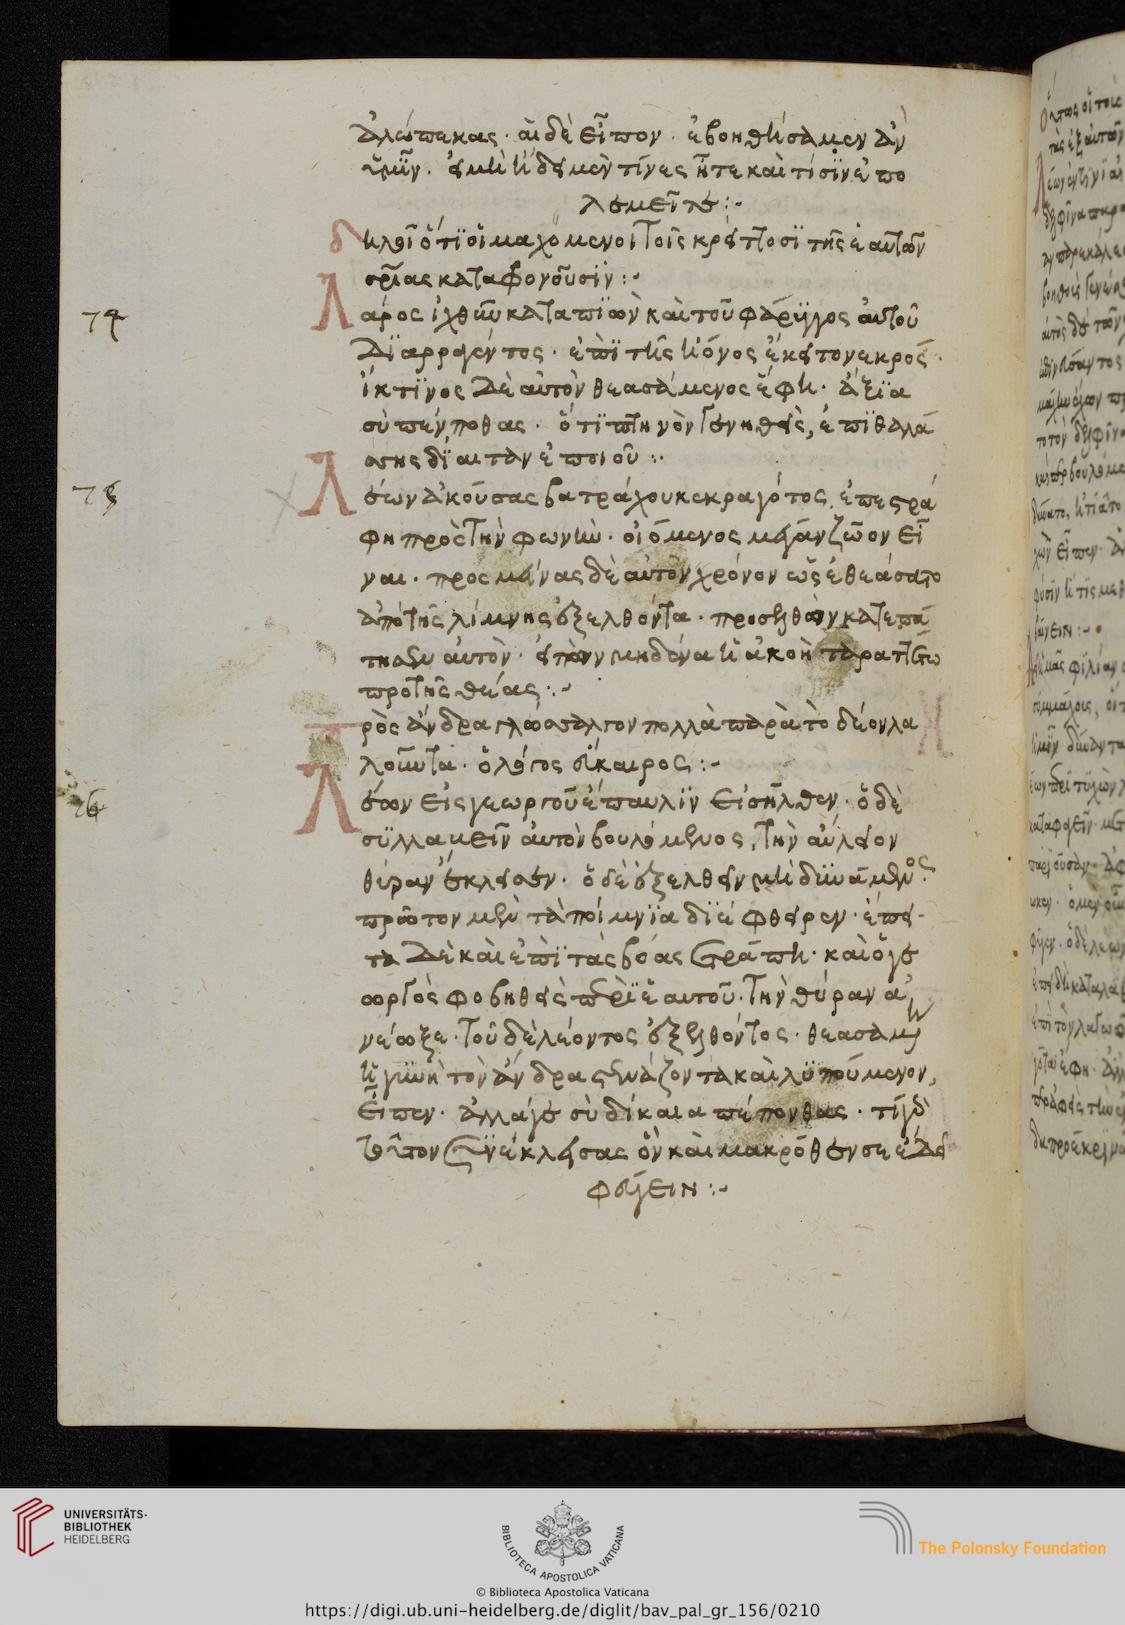 ἀλώπεκας · αἱ δὲ εἶπον · ἐβοηθήσαμεν ἂν
ὑμῖν · εἰ μὴ ᾔδειμεν τίνες ἦτε καὶ τίσιν ἐπο
λεμεῖτε :~
δηλοῖ ὅτι οἱ μαχόμενοι τοῖς κρείττοσι τῆς ἑαυτῶν
σρίας καταφρονοῦσιν :~
74
Λάρος ἰχθῦν καταπιὼν καὶ τοῦ φάρυγγος αὐτοῦ
διαρραγέντος · ἐπὶ τῆς ἠόνος ἔκειτο νεκρός ·
ἴκτινος δὲ αὐτὸν θεασάμενος ἔφη · ἄξια
σὺ πέπονθας · ὅτι πτηνὸν γεννηθεὶς, ἐπὶ θαλά
σσης δίαιταν ἐποιοῦ :·
75
Λέων ἀκούσας βατράχου κεκραγότος, ἐπεστρά
φη πρὸς τὴν φωνὴν · οἰόμενος μέγαν ζῶον εἶ
ναι · προσμείνας δὲ αὐτὸν χρόνον ὡς ἐθεάσατο
ἀπὸ τῆς λίμνης ἐξελθόντα · προσελθὼν κατεπά
τησεν αὐτὸν · εἰπὼν μηδένα ἡ ἀκοὴ ταραττέτω
πρὸ τῆς θέας :~
πρὸς ἄνδρα γλώσσαλγον πολλὰ παρὰ τὸ δέον λα
λοῦντα · ὁ λόγος εὔκαιρος :~
76
Λέων εἰς γεωργοῦ ἔπαυλιν εἰσῆλθεν · ὁ δὲ
συλλαμεῖν αὐτὸν βουλόμενος, τὴν αὔλειον
θύραν ἔκλεισεν · ὁ δὲ ἐξελθεῖν μὴ δυνάμενος ·
πρῶτον μὲν τὰ ποίμνια διέφθειρεν · ἔπει
τα δὲ καὶ ἐπὶ τὰς βόας ἐτράπη · καὶ ὁ γε
ωργὸς φοβηθεὶς περὶ ἑαυτοῦ · τὴν θύραν ἀ
νέωξε · τοῦ δὲ λέοντος ἐξελθόντος · θεασαμένη
ἡ γυνὴ τὸν ἄνδρα στενάζοντα καὶ λυπούμενον,
εἶπεν · ἀλλάγε σὺ δίκαια πέπονθας · τί γὰρ
τοῦτον συνέκλεισας ὃν καὶ μακρόθεν σε ἔδει
φεύγειν :~
UNIVERSITÄTS-
BIBLIOTHEK
HEIDELBERG
BIBLIOTECA APOSTOLICA VATICANA
The Polonsky Foundation
© Biblioteca Apostolica Vaticana
https://digi.ub.uni-heidelberg.de/diglit/bav_pal_gr_156/0210